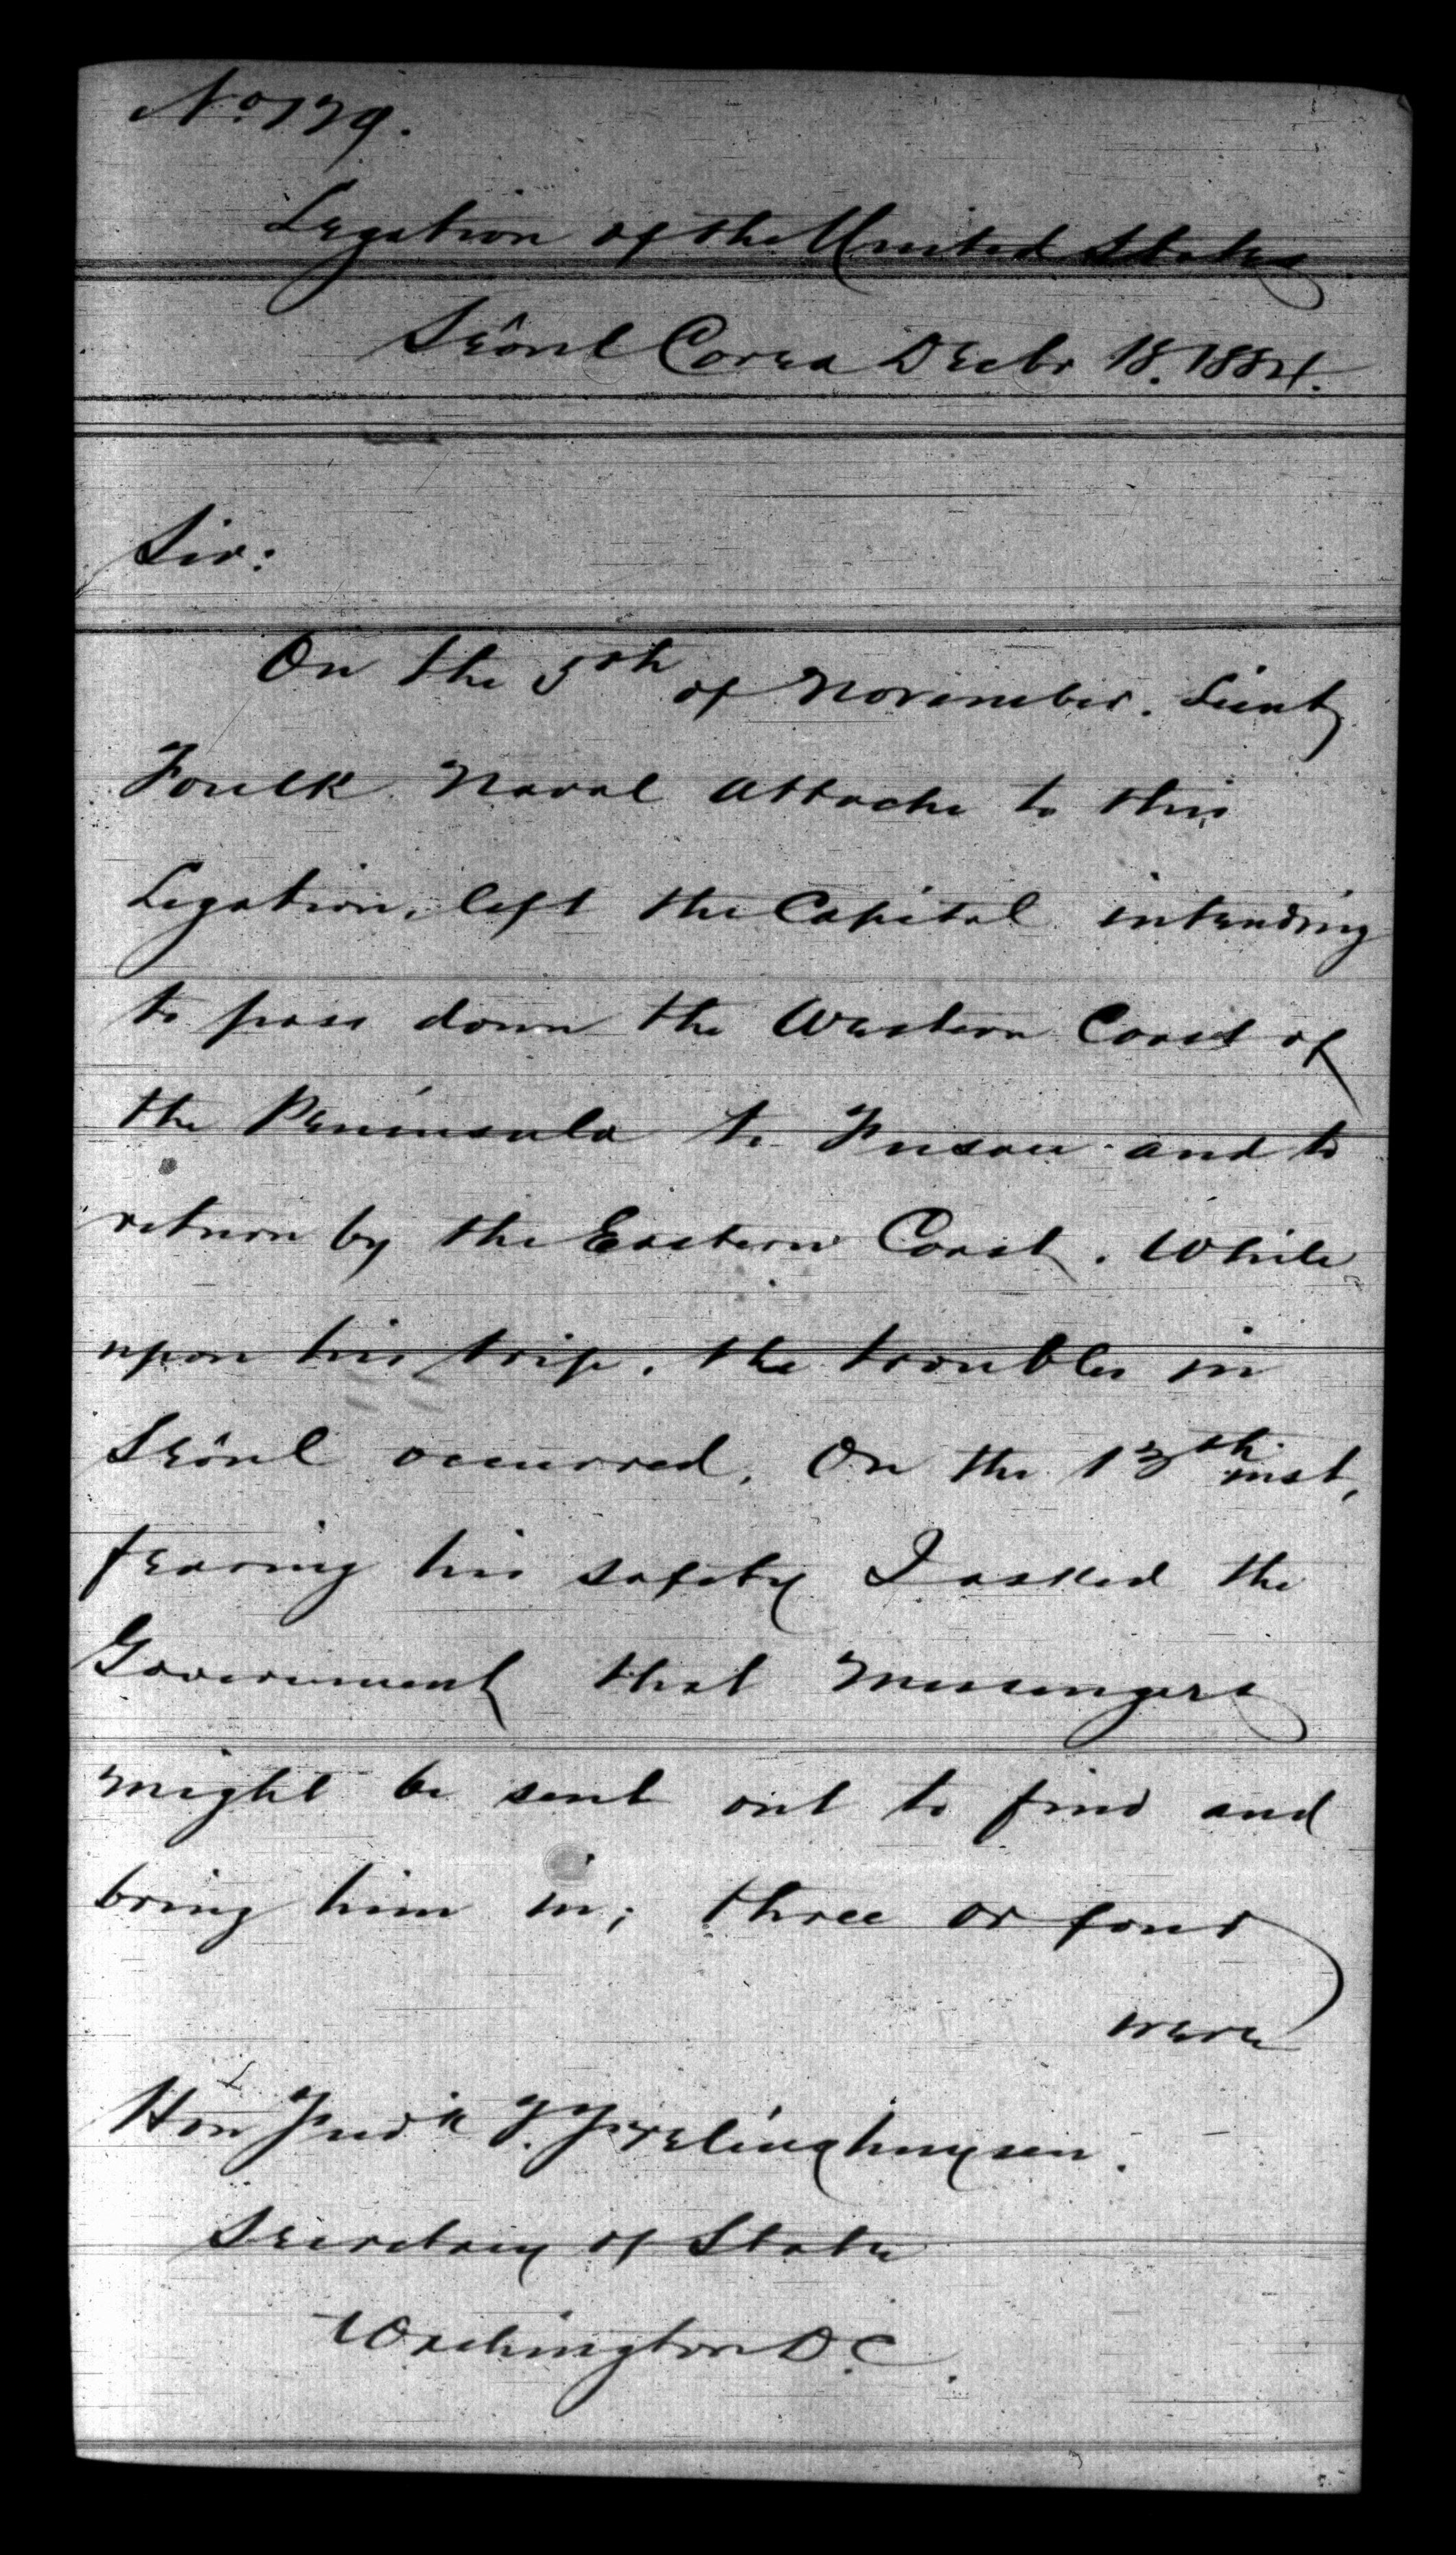 No 139.
Legation of the United States
Seôul Corea Decbr 18. 1884.
Sir:
On the 5th of November. Lieut
Foulk Naval Attache to this
Legation, left the Capital intending
to pass down the Western Coast of
the Peninsula to Fusan and to
return by the Eastern Coast. While
upon his trip, the troubles in
Seôul occurred. On the 13th inst,
fearing his safety I asked the
Government that messengers
might be sent out to find and
bring him in; three or four
were
Hon Fredk T. Frelinghuysen.
Secretary of State
Washington D.C.